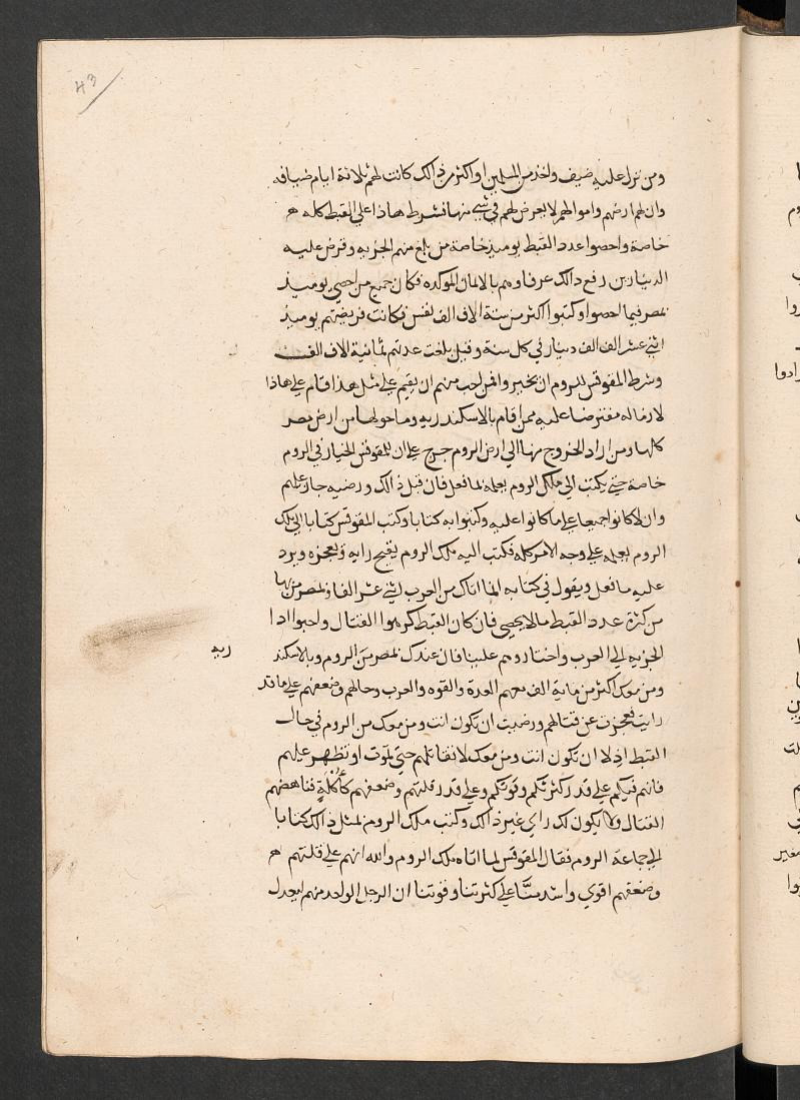 43
ومن نزل عليه ضيف واحد من المسلمين او اكثر من ذالك كانت لهم ثلاثة ايام ضيافه
وان لهم ارضهم واموالهم لا يعرض لهم في شي منها فشرط هاذا علي القبط كله هم
خاصة واحصوا عدد القبط يوميذ خاصة من بلغ منهم الجزيه وفرض عليه
الدينارين رفع ذالك عرفاوهم بالايمان الموكده فكان جميع من احصي يوميذ
بمصر فيما احصوا وكتبوا اكثر من ستة الاف الف نفس فكانت فريضتهم يوميذ
اثني عشر الف الف دينار في كل سنة وقيل بلغت عدتهم ثمانية الاف الف
وشرط المقوقس للروم ان يخيروا فمن احب منهم ان يقيم علي مثل هذا اقام علي هاذا
لازما له مفترضا عليه ممن اقام بالاسكندريه وما حولها من ارض مصر
كلها ومن اراد الخروج منها الي ارض الروم خرج علي ان للمقوقس الخيار في الروم
خاصة حتي يكتب الي ملك الروم يعلمه بما فعل فان قبل ذالك ورضيه جاز عليهم
وان لا كانوا جميعا علي ما كانوا عليه وكتبوا به كتابا وكتب المقوقس كتابا الي ملك
الروم يعلمه علي وجه الامر كله فكتب اليه ملك الروم يقبح رايه ويعجزه ويرد
عليه ما فعل ويقول في كتابه انما اتاك من العرب اثني عشر الفا وبمصر من بها
من كثرة عدد القبط ما لا يحصي فان كان القبط كرهوا القتال واحبوا ادا
الجزيه الي العرب واختاروهم علينا فان عندك بمصر من الروم وبالاسكند
ريه
ومن معك اكثر من ماية الف معهم العدة والقوه والعرب وحالهم وضعفهم علي ما قد
رايت فعجزت عن قتالهم ورضيت ان تكون انت ومن معك من الروم في حال
القبط اذلا ان تكون انت ومن معك لا تقاتلهم حتي تموت او تظهر عليهم
فانهم فيكم علي قدر كثرتكم وقوتكم وعلي قدر قلتهم وضعفهم كأُكْلَةٍ فناهضهم
القتال ولا يكون لك راي غير ذالك وكتب ملك الروم بمثل ذالك كتابا
الي جماعة الروم فقال المقوقس لما اتاه ملك الروم والله انهم علي قلتهم هم
وضعفهم اقوي واشد منّا علي كثرتنا وقوتنا ان الرجل الواحد منهم ليعدل